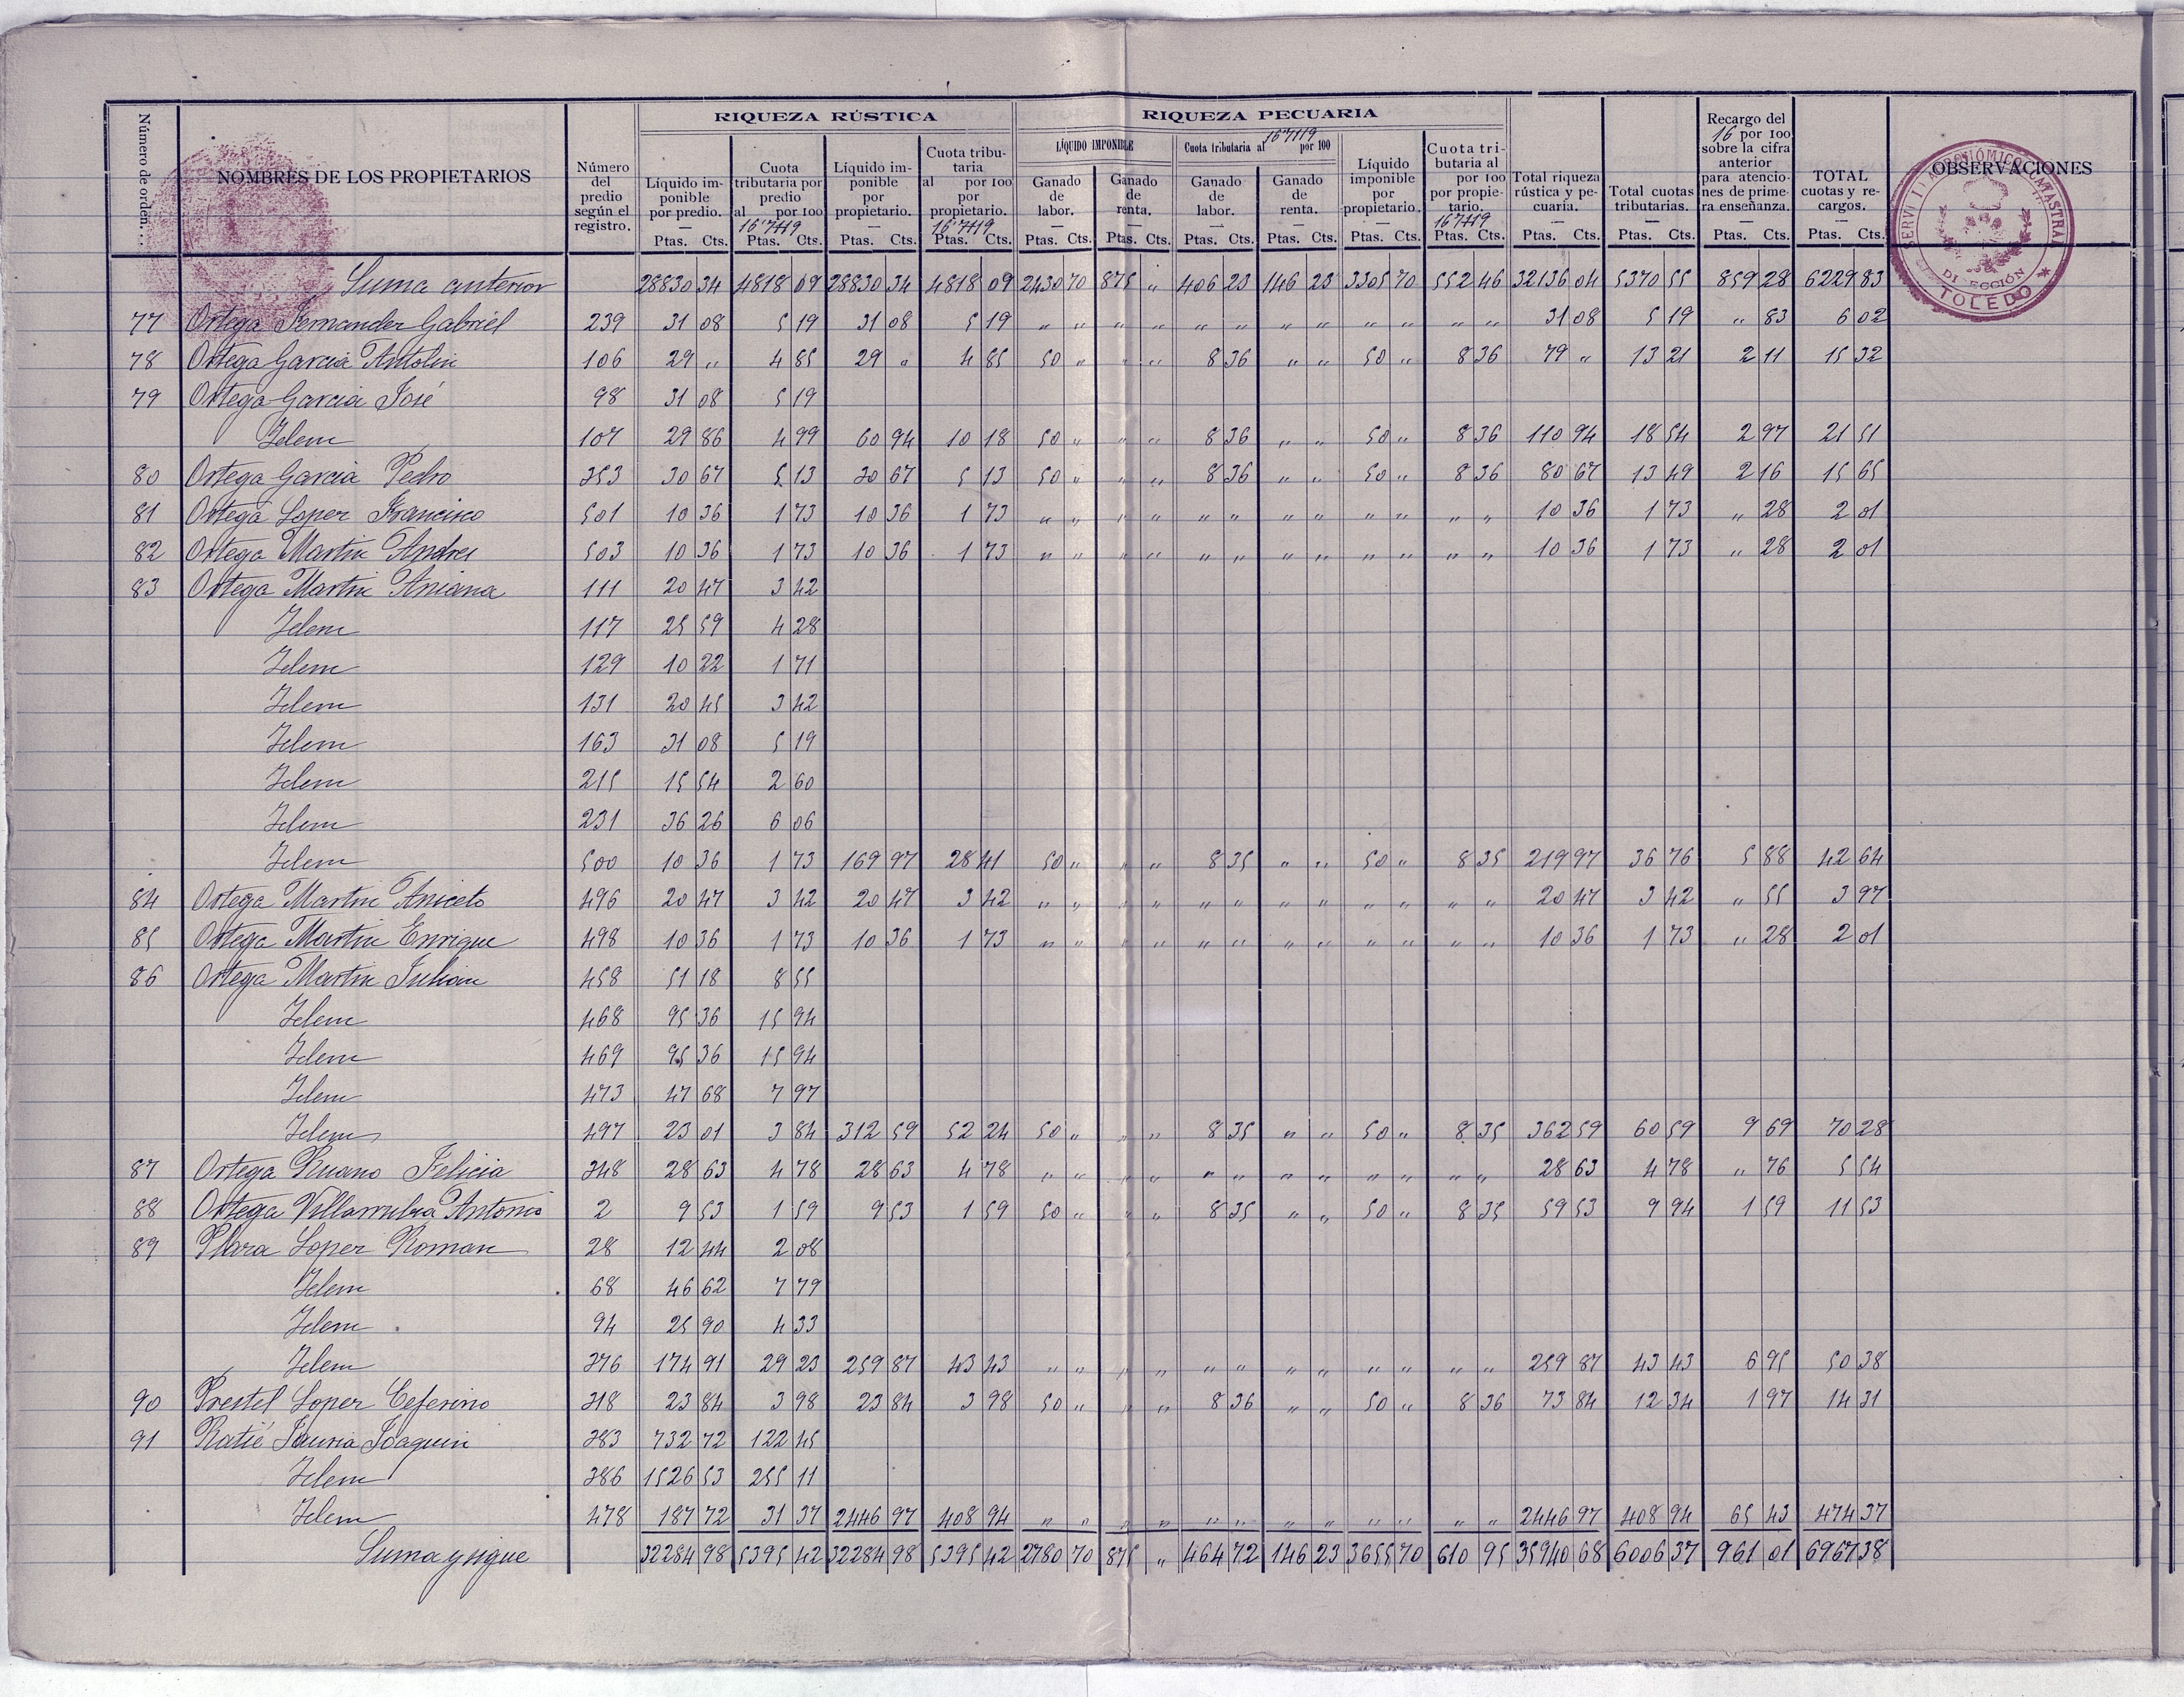 RIQUEZA RÚSTICA RIQUEZA PECUARIA
Número de orden... NOMBRES DE LOS PROPIETARIOS Número del predio según el registro. Líquido imponible por predio. Ptas. Cts. Cuota tributaria por predio al 16'7119 por 100 Ptas. Cts. Líquido imponible por propietario. Ptas. Cts. Cuota tributaria al por 100 por propietario. 16'7119 Ptas. Cts. LÍQUIDO IMPONIBLE Ganado de labor. Ptas. Cts. Ganado de renta. Ptas. Cts. Cuota tributaria al 16'7119 por 100 Ganado de labor. Ptas. Cts. Ganado de renta. Ptas. Cts. Líquido imponible por propietario. Ptas. Cts. Cuota tributaria al por 100 por propietario. 16'7119 Ptas. Cts. Total riqueza rústica y pecuaria. Ptas. Cts. Total cuotas tributarias. Ptas. Cts. Recargo del 16 por 100 sobre la cifra anterior para atenciones de primera enseñanza. Ptas. Cts. TOTAL cuotas y recargos. Ptas. Cts. OBSERVACIONES
TOLEDO
Suma anterior 28830 34 4818 09 28830 34 4818 09 2430 70 875 „ 406 23 146 23 3305 70 552 46 32136 04 5370 55 859 28 6229 83
77 Ortega Fernander Gabriel 239 31 08 5 19 31 08 5 19 „ „ „ „ „ „ „ „ „ „ „ „ 31 08 5 19 „ 83 6 02
78 Ortega Garcia Antolin 106 29 „ 4 85 29 „ 4 85 50 „ „ „ 8 36 „ „ 50 „ 8 36 79 „ 13 21 2 11 15 32
79 Ortega Garcia José 98 31 08 5 19
Idem 107 29 86 4 99 60 94 10 18 50 „ „ „ 8 36 „ „ 50 „ 8 36 110 94 18 54 2 97 21 51
80 Ortega Garcia Pedro 353 30 67 5 13 30 67 5 13 50 „ „ „ 8 36 „ „ 50 „ 8 36 80 67 13 49 2 16 15 65
81 Ortega Loper Francisco 501 10 36 1 73 10 36 1 73 „ „ „ „ „ „ „ „ „ „ „ „ 10 36 1 73 „ 28 2 01
82 Ortega Martin Andres 503 10 36 1 73 10 36 1 73 „ „ „ „ „ „ „ „ „ „ „ „ 10 36 1 73 „ 28 2 01
83 Ortega Martin Aniana 111 20 47 3 42
Idem 117 25 59 4 28
Idem 129 10 22 1 71
Idem 131 20 45 3 42
Idem 163 31 08 5 19
Idem 215 15 54 2 60
Idem 231 36 26 6 06
Idem 500 10 36 1 73 169 97 28 41 50 „ „ „ 8 35 „ „ 50 „ 8 35 219 97 36 76 5 88 42 64
84 Ortega Martin Aniceto 496 20 47 3 42 20 47 3 42 „ „ „ „ „ „ „ „ „ „ „ „ 20 47 3 42 „ 55 3 97
85 Ortega Martin Enrique 498 10 36 1 73 10 36 1 73 „ „ „ „ „ „ „ „ „ „ „ „ 10 36 1 73 „ 28 2 01
86 Ortega Martin Julian 458 51 18 8 55
Idem 468 95 36 15 94
Idem 469 95 36 15 94
Idem 473 47 68 7 97
Idem 497 23 01 3 84 312 59 52 24 50 „ „ „ 8 35 „ „ 50 „ 8 35 362 59 60 59 9 69 70 28
87 Ortega Ruano Felicia 348 28 63 4 78 28 63 4 78 „ „ „ „ „ „ „ „ „ „ „ „ 28 63 4 78 „ 76 5 54
88 Ortega Villarrubia Antonio 2 9 53 1 59 9 53 1 59 50 „ „ „ 8 35 „ „ 50 „ 8 35 59 53 9 94 1 59 11 53
89 Plara Loper Roman 28 12 44 2 08
Idem 68 46 62 7 79
Idem 94 25 90 4 33
Idem 376 174 91 29 23 259 87 43 43 „ „ „ „ „ „ „ „ „ „ „ „ 259 87 43 43 6 95 50 38
90 Prestel Loper Ceferino 318 23 84 3 98 23 84 3 98 50 „ „ „ 8 36 „ „ 50 „ 8 36 73 84 12 34 1 97 14 31
91 Ratié Joaquin 383 732 72 122 45
Idem 386 1526 53 255 11
Idem 478 187 72 31 37 2446 97 408 94 „ „ „ „ „ „ „ „ „ „ „ „ 2446 97 408 94 65 43 474 37
Suma y sigue 32284 98 5395 42 32284 98 5395 42 2780 70 875 „ 464 72 146 23 3655 70 610 95 35940 68 6006 37 961 01 6967 38